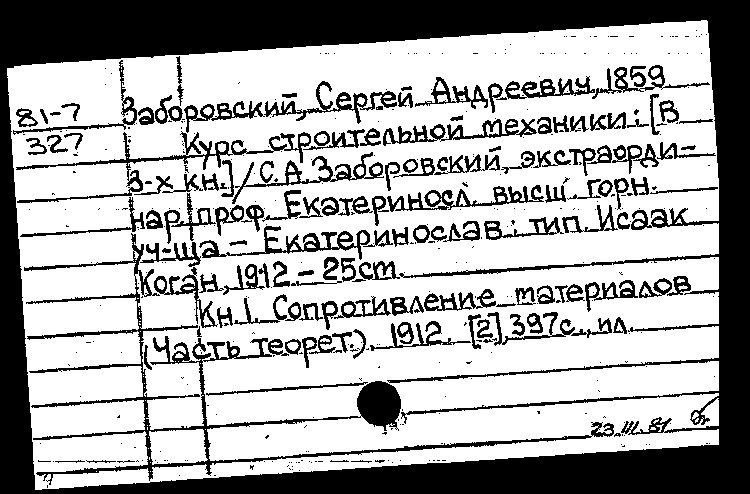 81-7 Заборовский, Сергей Андреевич, 1859
327 Курс строительной механики: [В
3-х кн.] / С.А. Заборовский, экстраорди-
нар. проф. Екатериносл. высш. горн.
уч-ща. – Екатеринослав: тип. Исаак
Коган, 1912. – 25 см.
Кн. 1. Сопротивление материалов
(Часть теорет.). 1912. [2], 397 с., ил.
23.III.81